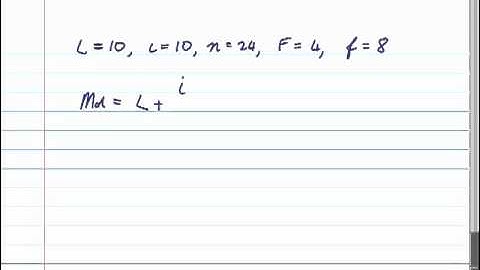 L = 10, i = 10, n = 24, F = 4, f = 8
i
Md = L +